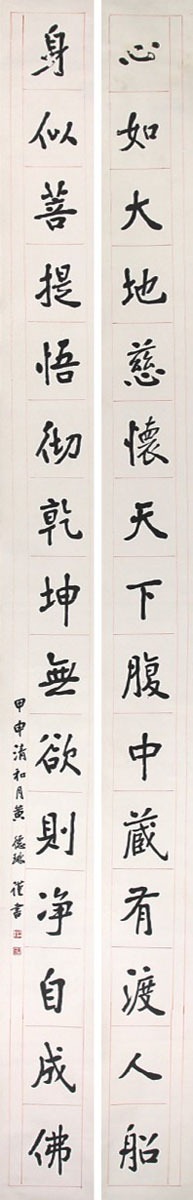 心如大地慈懷天下腹中藏有渡人船
身似菩提悟彻乾坤無欲則净自成佛
甲申清和月黄德琳谨書